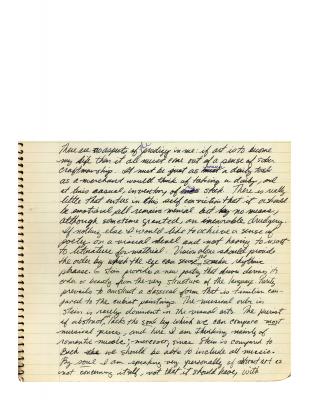 There are no aspects of grading in me: if art is to become
my life then it all must come out of a sense of order
craftmanship. It must be just as much a daily task
as a merchant would think of taking a daily, and
at times casual, inventory of his stock. There is really
little that enters in this self conviction that it should
be emotional all remains mental but by no means,
although sometime granted, an drudgery.
If nothing else I would like to achieve a sense of
poetry on a visual level and not having to resort
to literature for material. Vision alone should provide
the order by which the eye can sense the rhythmic
phrase. G. Stein provides a new poetry that draws
order or beauty from the very structure of the language. Purity
prevails to construct a classical form that is similar com-
pared to the cubist paintings. The musical order in
Stein is really dominent in the visual arts. The purest
of abstract, lacks the soul by which we can compare most
musical pieces, and here I am thinking mainly of
romantic music; moreover, since Stein is compared to
Bach we should be able to include all music.
By soul I am speaking very personally of abstract as
not concerning itself, not that it should have, with